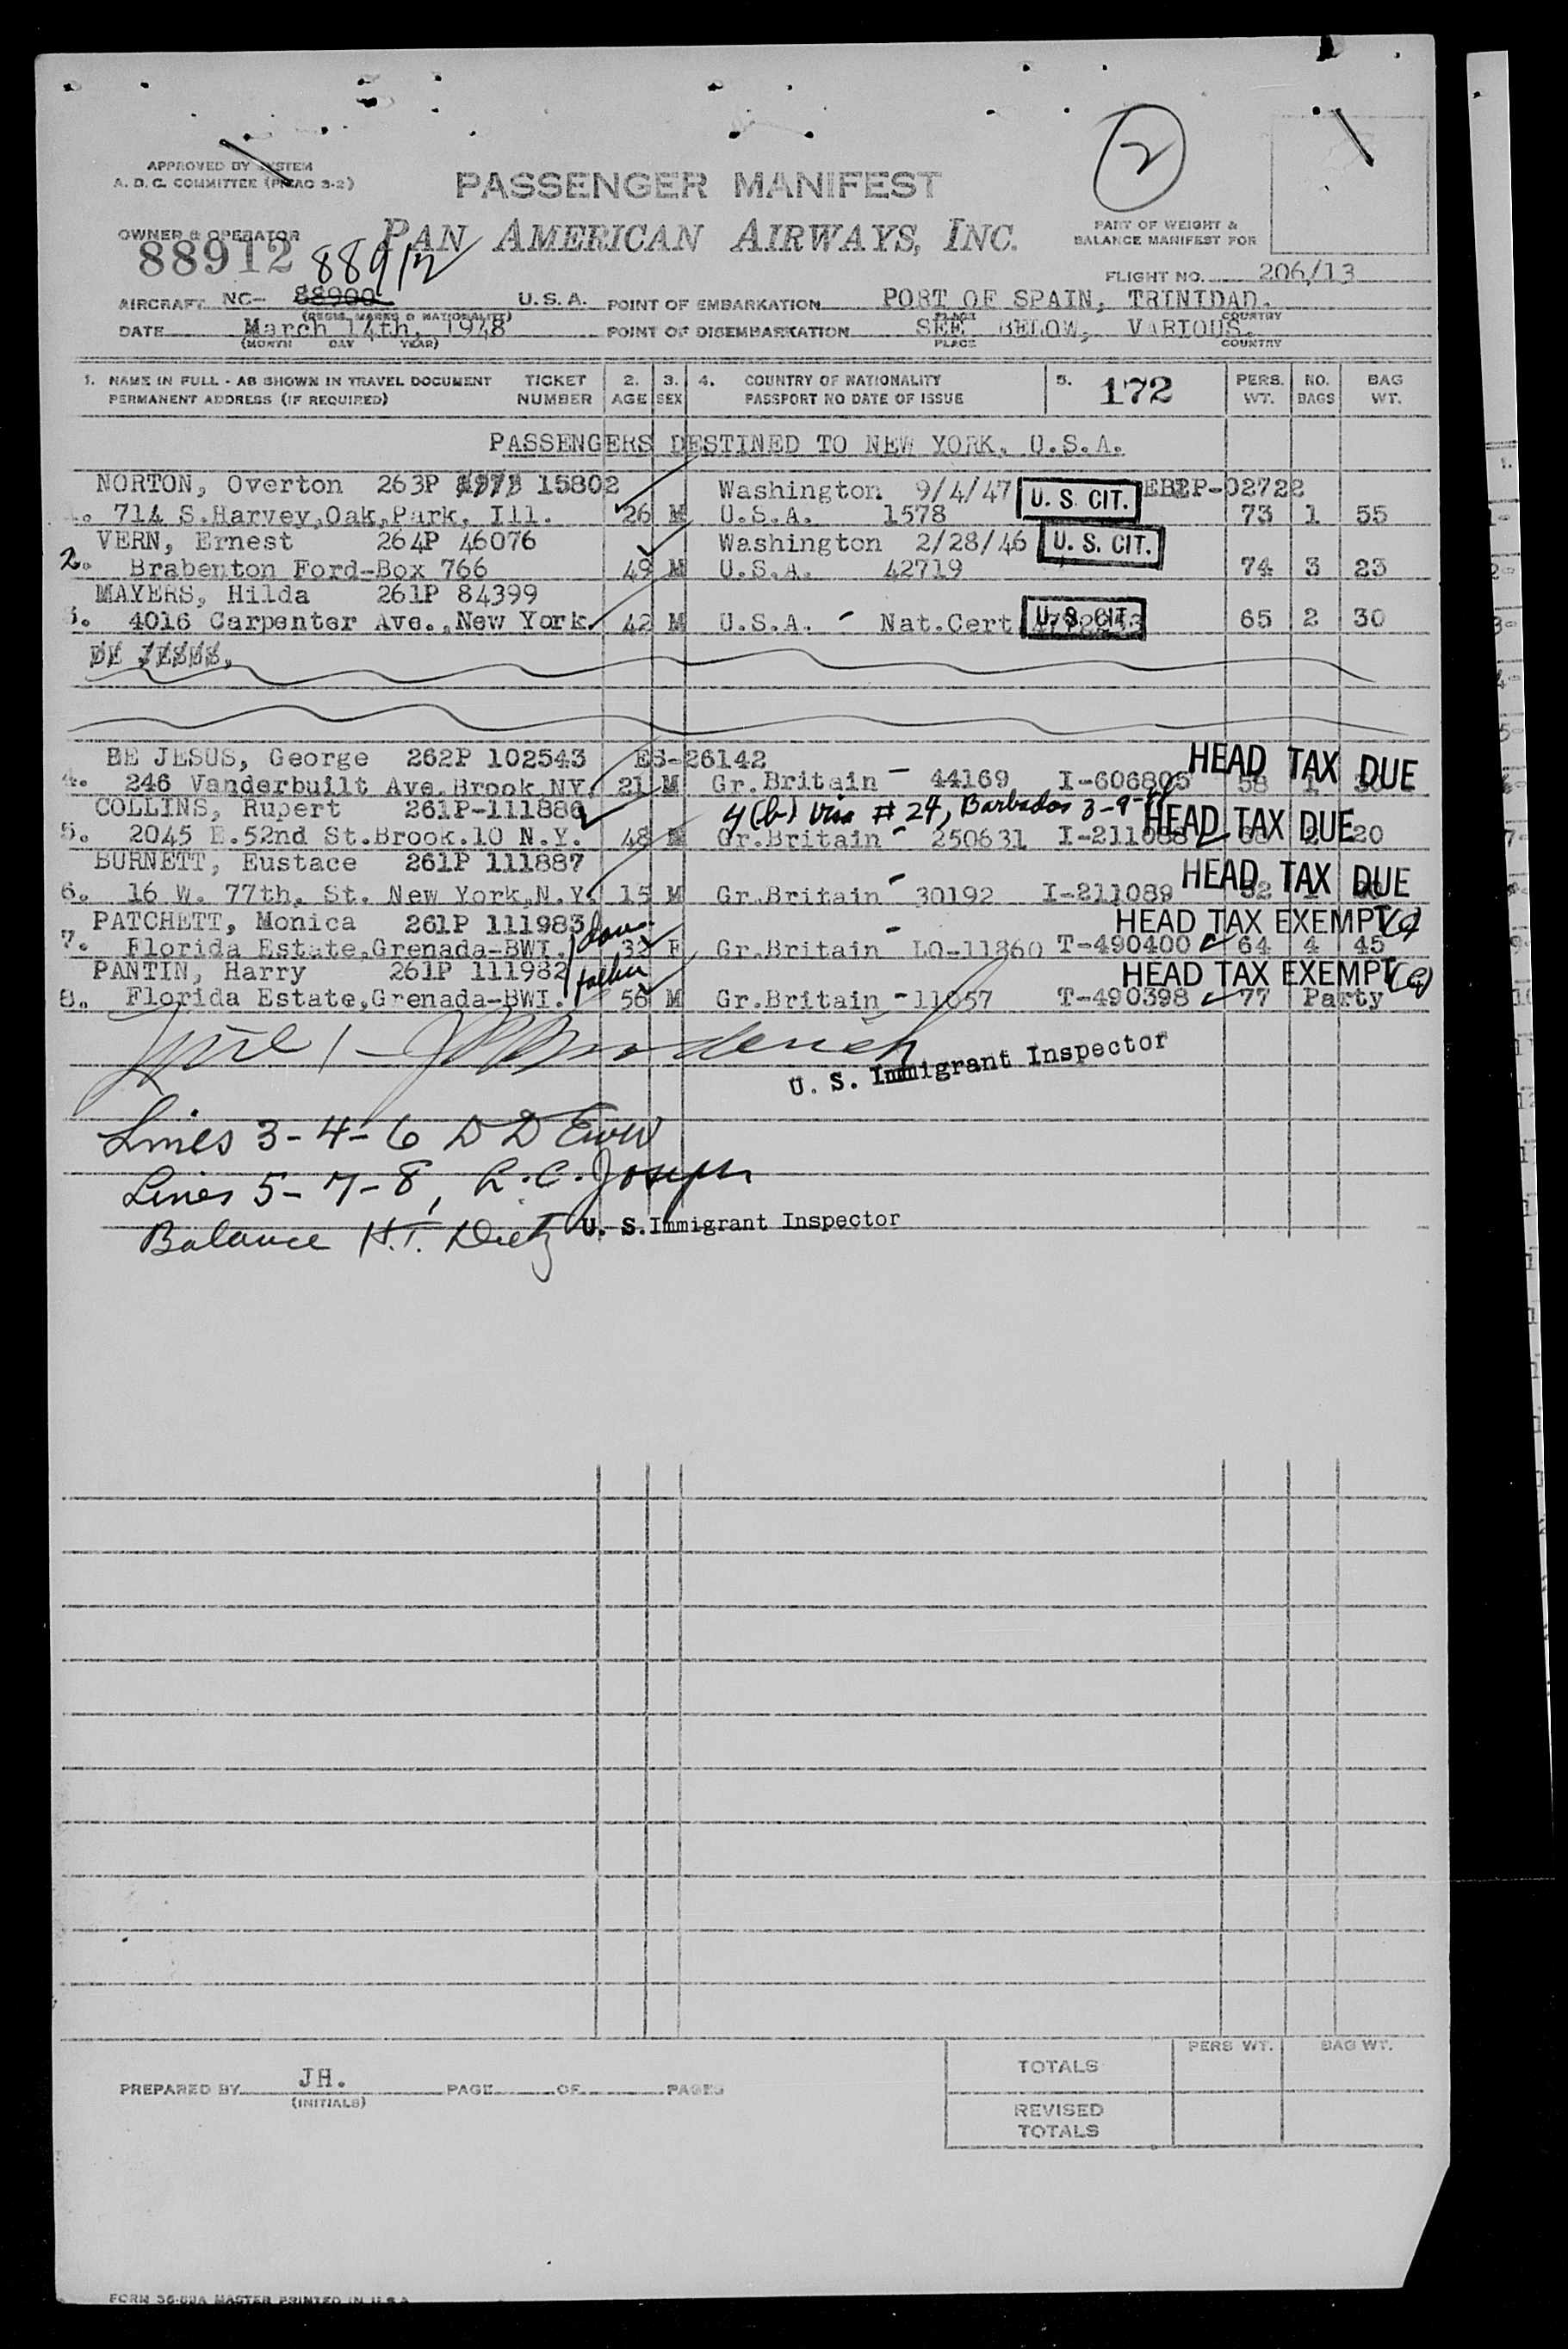 APPROVED BY SYSTEM
A. D. C. COMMITTEE (PICAO 3-2)
PASSENGER MANIFEST
2
OWNER & OPERATOR
88912 88912
PAN AMERICAN AIRWAYS, INC.
PART OF WEIGHT &
BALANCE MANIFEST FOR
FLIGHT NO. 206/13
AIRCRAFT NC- 88900 U.S.A. POINT OF EMBARKATION PORT OF SPAIN, TRINIDAD.
(REGIS. MARKS & NATIONALITY) PLACE COUNTRY
DATE March 14th, 1948 POINT OF DISEMBARKATION SEE BELOW, VARIOUS.
(MONTH DAY YEAR) PLACE COUNTRY
1. NAME IN FULL - AS SHOWN IN TRAVEL DOCUMENT TICKET 2. 3. 4. COUNTRY OF NATIONALITY 5. 172 PERS. NO. BAG
PERMANENT ADDRESS (IF REQUIRED) NUMBER AGE SEX PASSPORT NO DATE OF ISSUE WT. BAGS WT.
PASSENGERS DESTINED TO NEW YORK, U.S.A.
NORTON, Overton 263P 15802 Washington 9/4/47 U. S. CIT.
714 S.Harvey,Oak,Park, Ill. 26 M U.S.A. 1578 73 1 55
VERN, Ernest 264P 46076 Washington 2/28/46 U. S. CIT.
2. Brabenton Ford-Box 766 49 M U.S.A. 42719 74 3 23
MAYERS, Hilda 261P 84399
3. 4016 Carpenter Ave.,New York. 42 M U.S.A. - Nat.Cert U. S. CIT. 65 2 30
DE JESUS,
DE JESUS, George 262P 102543 ES-26142 HEAD TAX DUE
4. 246 Vanderbuilt Ave.Brook.NY. 21 M Gr.Britain - 44169 I-606805 58 1
COLLINS, Rupert 261P-111886 4(b) Visa # 24, Barbados 3-9-48 HEAD TAX DUE
5. 2045 E.52nd St.Brook.10 N.Y. 48 M Gr.Britain - 250631 I-211088 20
BURNETT, Eustace 261P 111887 HEAD TAX DUE
6. 16 W. 77th, St. New York,N.Y. 15 M Gr.Britain - 30192 I-211089
PATCHETT, Monica 261P 111983 HEAD TAX EXEMPT
7. Florida Estate,Grenada-BWI. 32 F Gr.Britain - LO-11860 T-490400 64 4 45
PANTIN, Harry 261P 111982 father HEAD TAX EXEMPT
8. Florida Estate,Grenada-BWI. 56 M Gr.Britain - 11057 T-490398 77 Party
U. S. Immigrant Inspector
Lines 3-4-6 D D
Lines 5-7-8, L.C. Joseph
Balance H.T. Dietz U. S. Immigrant Inspector
PREPARED BY JH. PAGE OF PAGES
(INITIALS)
PERS WT. BAG WT.
TOTALS
REVISED
TOTALS
FORM MASTER PRINTED IN U.S.A.